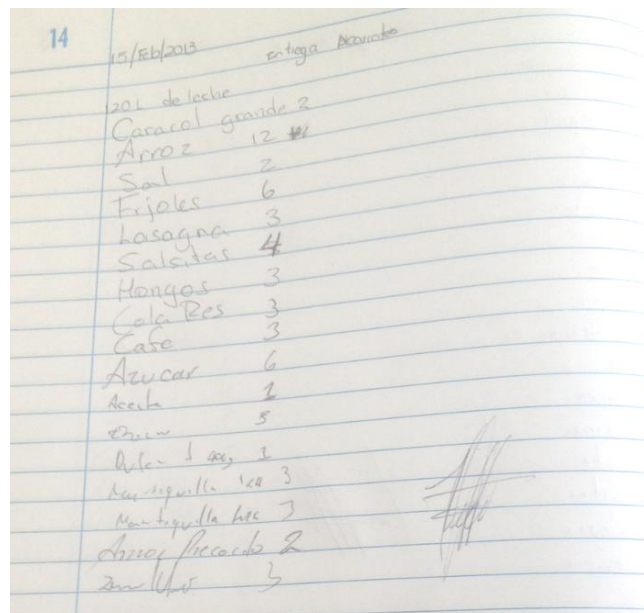 14
15/Feb/2013 Entrega
120 L de leche
Caracol grande 2
Arroz 12
Sal 2
Frijoles 6
Lasagna 3
Salsitas 4
Hongos 3
Cola Res 3
Cafe 3
Azucar 6
Aceite 1
3
1
Mantiquilla 3
Mantiquilla 3
Precocido 2
3